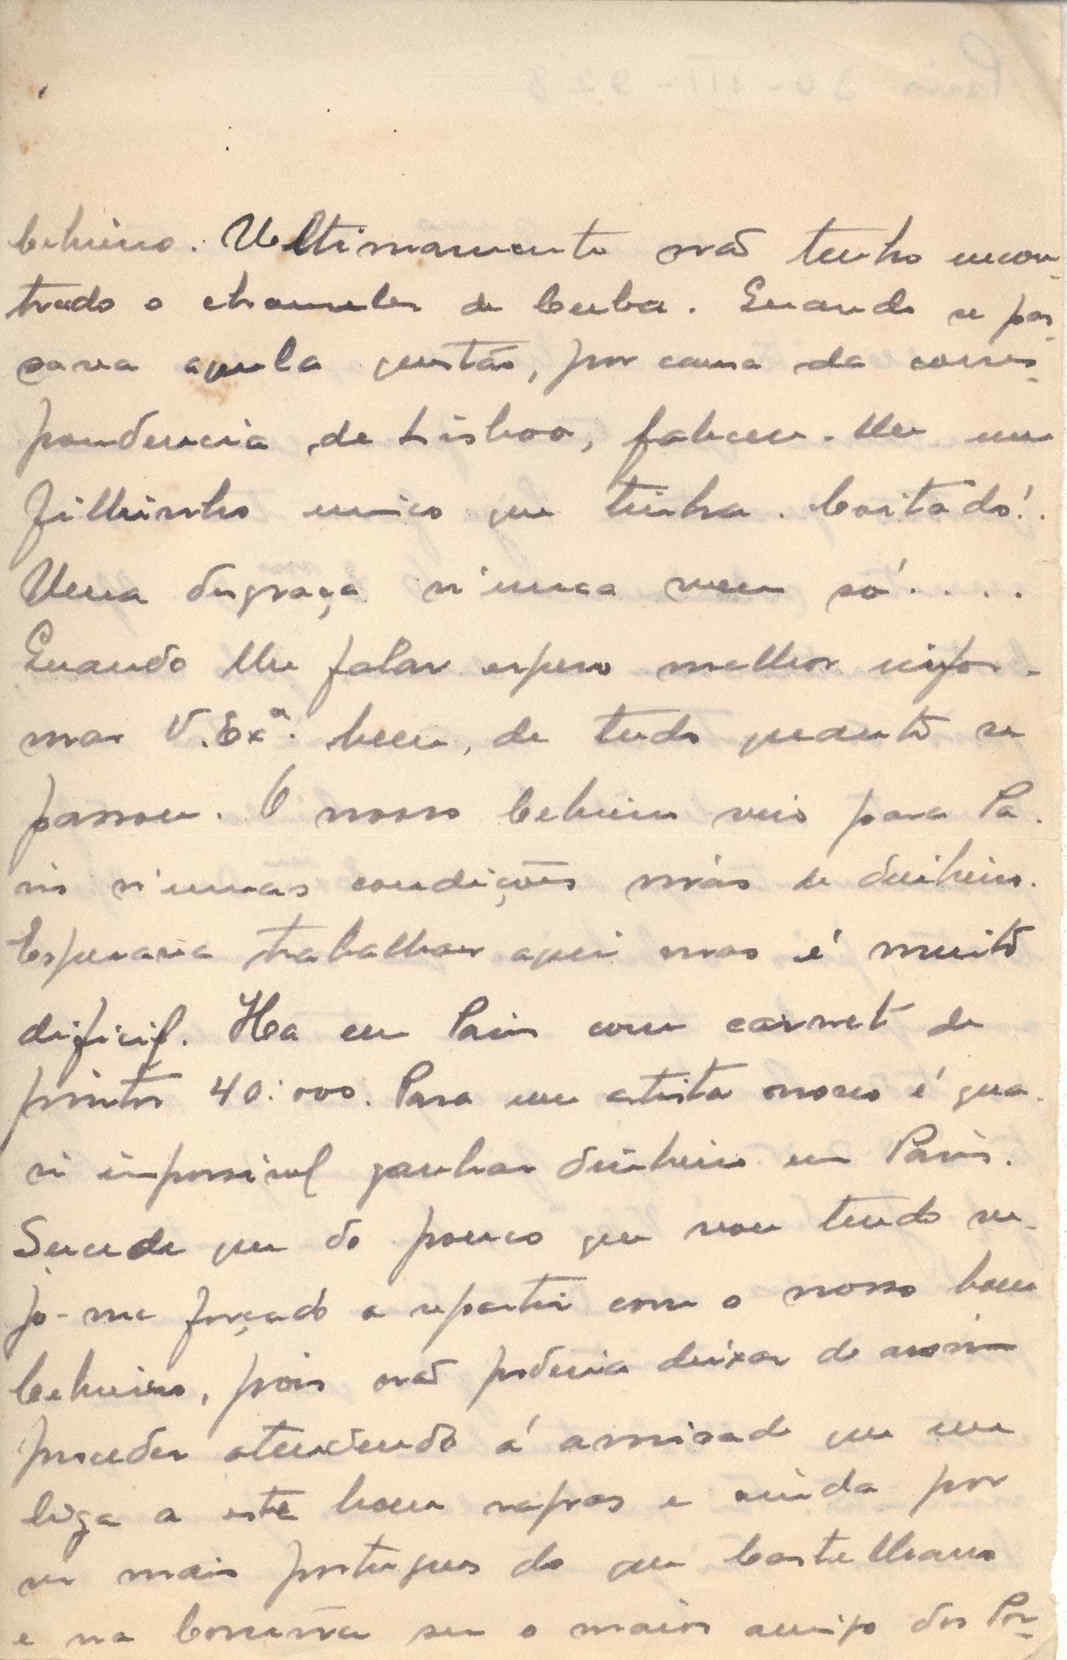 Cebreiro. Ultimamente não tenho encon-
trado o chanceler de Cuba. Quando se pas-
sava aquela questão, por causa da corres-
pondencia de Lisboa, faleceu-lhe um
filhinho unico que tinha. Coitado!.
Uma desgraça n'unca vem só....
Quando lhe falar espero melhor infor-
mar V. Exª. bem, de tudo quanto se
passou. O nosso Cebreiro veio para Pa-
ris n'umas condições más de dinheiro.
Esperava trabalhar aqui mas é muito
dificil. Ha em Paris com carnet de
pintor 40:000. Para um artista novo é qua-
si impossivel ganhar dinheiro em Paris.
Sucede que do pouco que vou tendo ve-
jo-me forçado a repartir com o nosso bom
Cebreiro, pois não poderia deixar de assim
proceder atendendo á amisade que me
liga a este bom rapas e ainda por
ser mais portugues do que Castelhano
e na Coruña ser o maior amigo dos Por-